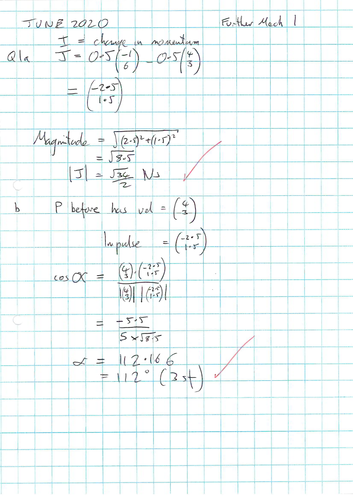 JUNE 2020 Further Mech 1
I = change in momentum
Q1a J = 0.5(-1 6) - 0.5(4 3)
= (-2.5 1.5)
Magnitude = √(2.5)² + (1.5)²
= √8.5
|J| = √34/2 Ns
b P before has vel = (4 3)
Impulse = (-2.5 1.5)
cos α = (4 3)·(-2.5 1.5) / |(4 3)| |(-2.5 1.5)|
= -5.5 / 5 × √8.5
α = 112.166
= 112° (3sf)